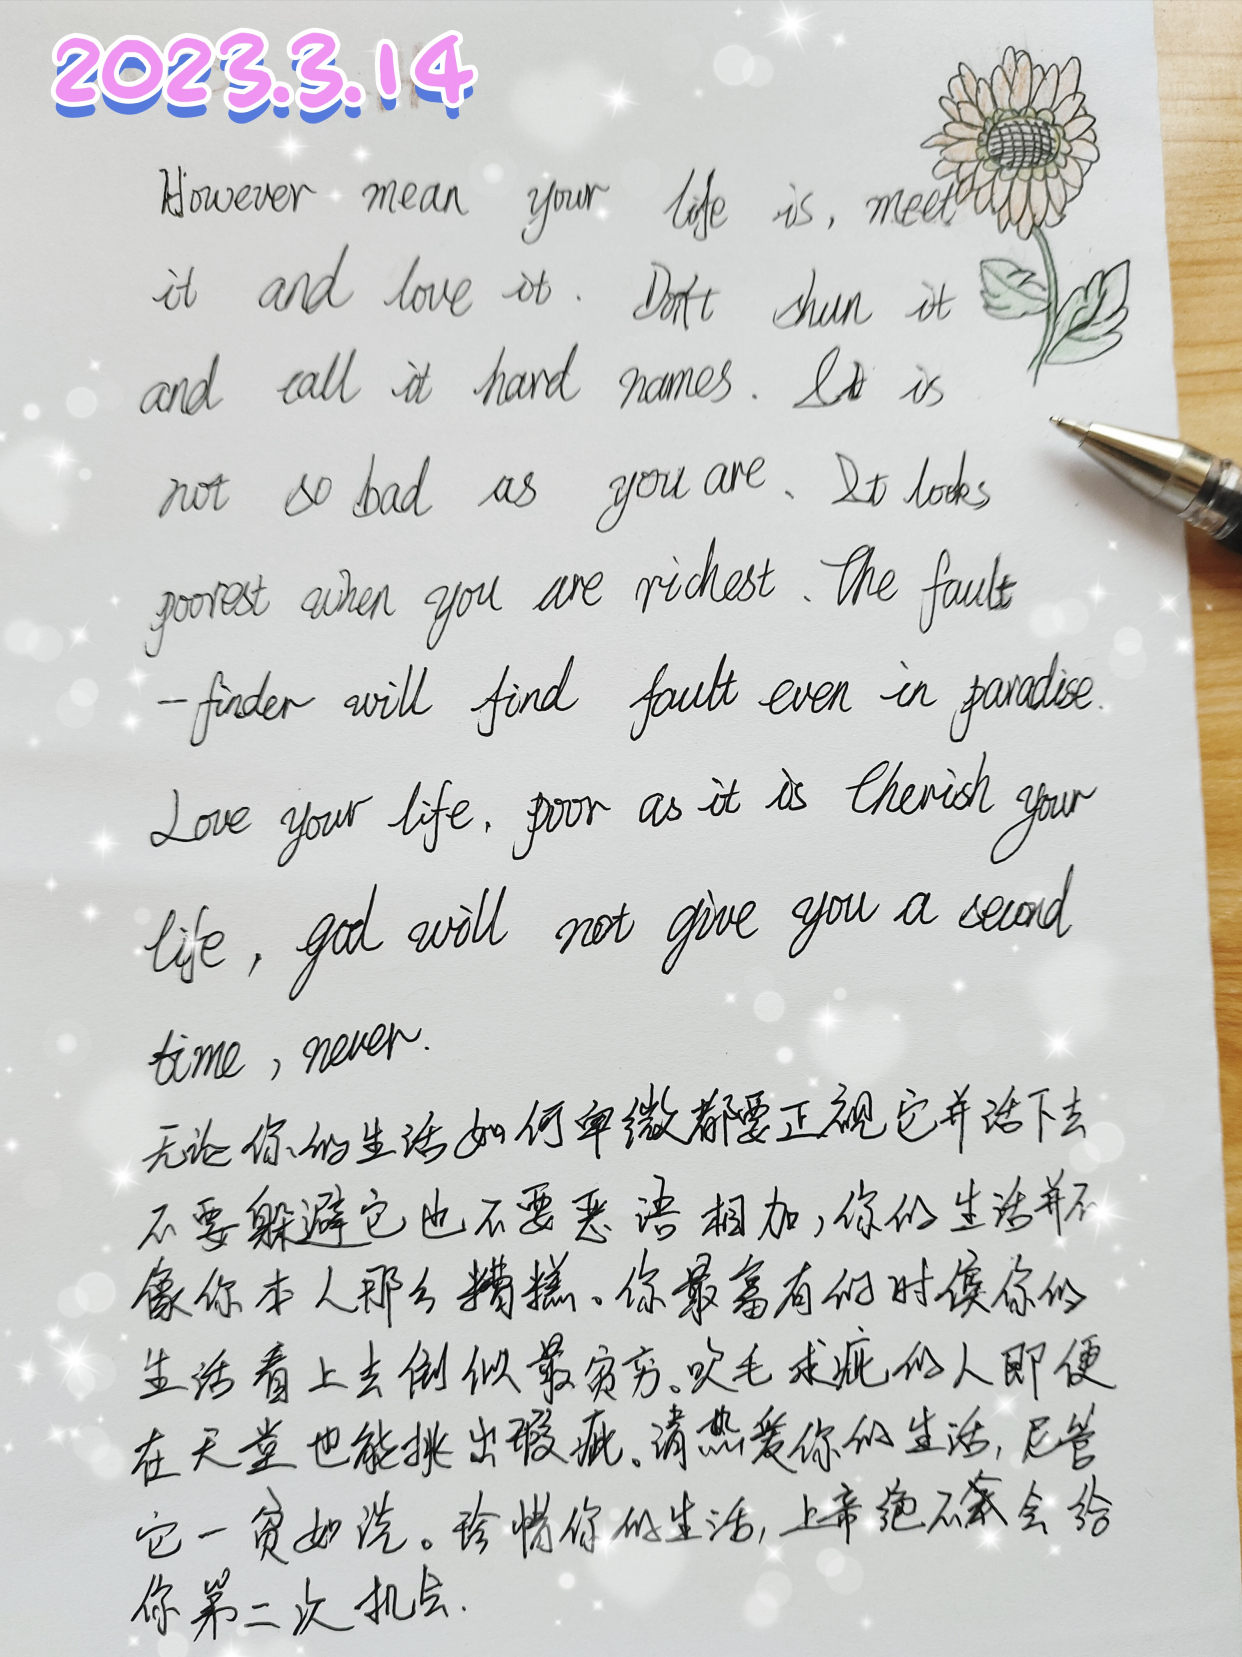 2023.3.14
However mean your life is, meet
it and love it. Don't shun it
and call it hard names. It is
not so bad as you are. It looks
poorest when you are richest. The fault
-finder will find fault even in paradise.
Love your life, poor as it is Cherish your
life, god will not give you a second
time, never.
无论你的生活如何卑微都要正视它并活下去
不要躲避它也不要恶语相加,你的生活并不
像你本人那么糟糕。你最富有的时候你的
生活看上去倒似最贫穷。吹毛求疵的人即便
在天堂也能挑出瑕疵。请热爱你的生活,尽管
它一贫如洗。珍惜你的生活,上帝绝不会给
你第二次机会.